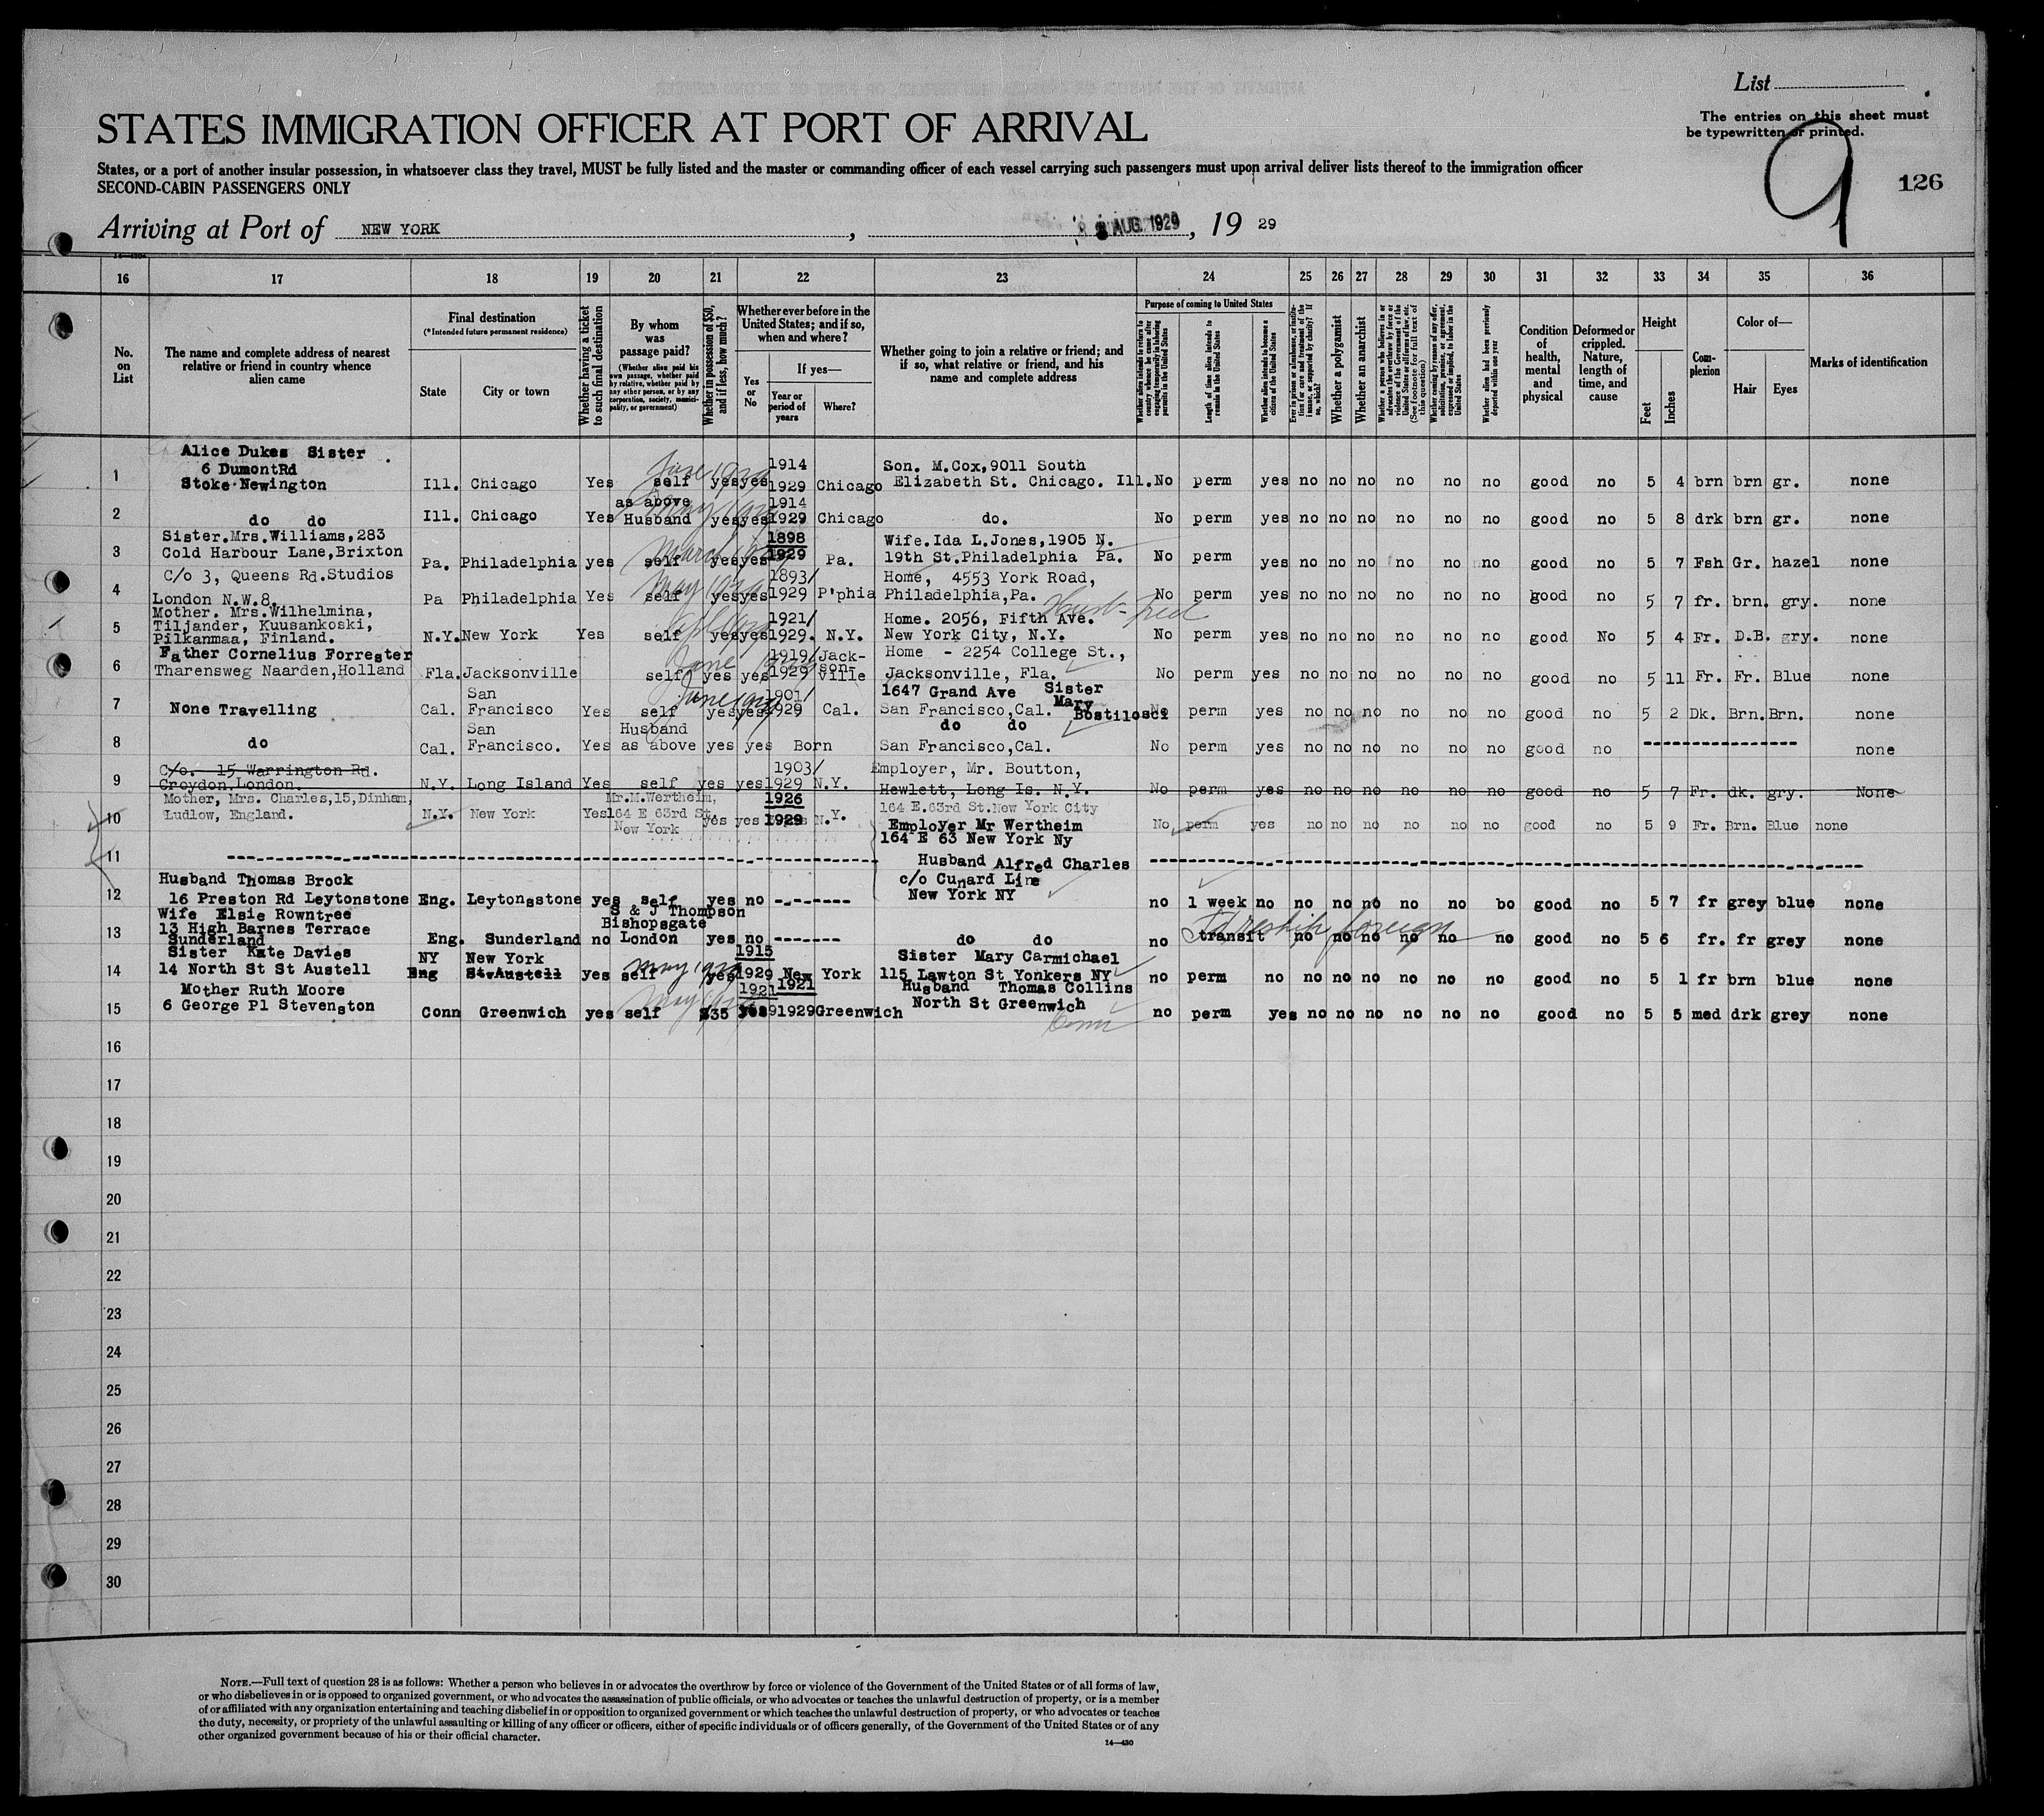 List
The entries on this sheet must
be typewritten or printed.
STATES IMMIGRATION OFFICER AT PORT OF ARRIVAL
9
126
States, or a port of another insular possession, in whatsoever class they travel, MUST be fully listed and the master or commanding officer of each vessel carrying such passengers must upon arrival deliver lists thereof to the immigration officer
SECOND-CABIN PASSENGERS ONLY
Arriving at Port of NEW YORK , AUG. 1929 , 19 29
16 17 18 19 20 21 22 23 24 25 26 27 28 29 30 31 32 33 34 35 36
No. on List
The name and complete address of nearest relative or friend in country whence alien came
Final destination
(*Intended future permanent residence)
State
City or town
Whether having a ticket to such final destination
By whom was passage paid?
(Whether alien paid his own passage, whether paid by relative, whether paid by any other person, or by any corporation, society, municipality, or government)
Whether in possession of $50, and if less, how much?
Whether ever before in the United States; and if so, when and where?
Yes or No
If yes—
Year or period of years
Where?
Whether going to join a relative or friend; and if so, what relative or friend, and his name and complete address
Purpose of coming to United States
Whether alien intends to return to country whence he came after engaging temporarily in laboring pursuits in the United States
Length of time alien intends to remain in the United States
Whether alien intends to become a citizen of the United States
Ever in prison or almshouse, or institution for care and treatment of the insane, or supported by charity? If so, which?
Whether a polygamist
Whether an anarchist
Whether a person who believes in or advocates the overthrow by force or violence of the Government of the United States or all forms of law, etc. (See footnote for full text of this question)
Whether coming by reason of any offer, solicitation, promise, or agreement, expressed or implied, to labor in the United States
Whether alien had been previously deported within one year
Condition of health, mental and physical
Deformed or crippled. Nature, length of time, and cause
Height
Feet
Inches
Complexion
Color of—
Hair
Eyes
Marks of identification
Alice Dukes Sister
6 DumontRd
1 Stoke Newington Ill. Chicago Yes self yes yes 1914 1929 Chicago Son. M.Cox,9011 South Elizabeth St. Chicago. Ill. No perm yes no no no no no no good no 5 4 brn brn gr. none
June 1929
2 do do Ill. Chicago Yes as above Husband yes yes 1914 1929 Chicago do. No perm yes no no no no no no good no 5 8 drk brn gr. none
Sister.Mrs.Williams,283
3 Cold Harbour Lane,Brixton Pa. Philadelphia yes self yes yes 1898 1929 Pa. Wife.Ida L.Jones,1905 N. 19th St.Philadelphia Pa. No perm yes no no no no no no good no 5 7 Fsh Gr. hazel none
C/o 3, Queens Rd.Studios
4 London N.W.8. Pa Philadelphia Yes self yes yes 1893/ 1929 P'phia Home, 4553 York Road, Philadelphia,Pa. No perm yes no no no no no no good no 5 7 fr. brn. gry. none
May 1929
Mother. Mrs.Wilhelmina,
5 Tiljander, Kuusankoski,
Pilkanmaa, Finland. N.Y. New York Yes self yes yes 1921/ 1929. N.Y. Home. 2056, Fifth Ave. New York City, N.Y. No perm yes no no no no no no good No 5 4 Fr. D.B. gry. none
Husb- Fred
Father Cornelius Forrester
6 Tharensweg Naarden,Holland Fla. Jacksonville self yes yes 1919/ 1929 Jack-son-ville Home - 2254 College St., Jacksonville, Fla. No perm yes no no no no no no good no 5 11 Fr. Fr. Blue none
June
7 None Travelling Cal. San Francisco Yes self yes yes 1901/ 1929 Cal. 1647 Grand Ave Sister Mary Bostilosci San Francisco,Cal. No perm yes no no no no no no good no 5 2 Dk. Brn. Brn. none
June 1929
8 do Cal. San Francisco. Yes Husband as above yes yes Born do do San Francisco,Cal. No perm yes no no no no no no good no ---------------- none
9 C/o. 15 Warrington Rd. Croydon,London. N.Y. Long Island Yes self yes yes 1903/ 1929 N.Y. Employer, Mr. Boutton, Hewlett, Long Is. N.Y. No perm yes no no no no no no good no 5 7 Fr. dk. gry. None
Mother, Mrs. Charles,15,Dinham,
10 Ludlow, England. N.Y. New York Yes Mr.M.Wertheim, 164 E 63rd St. New York yes yes 1926 1929 N.Y. 164 E.63rd St.New York City No perm yes no no no no no no good no 5 9 Fr. Brn. Blue none
Employer Mr Wertheim
164 E 63 New York Ny
11 ----------------
Husband Alfred Charles
c/o Cunard Line
New York NY
Husband Thomas Brock
12 16 Preston Rd Leytonstone Eng. Leytonsstone yes self yes no -------- no 1 week no no no no no no bo good no 5 7 fr grey blue none
Wife Elsie Rowntree
13 13 High Barnes Terrace
Sunderland Eng. Sunderland no S & J Thompson Bishopsgate London yes no ------- do do no transit no no no no no no good no 5 6 fr. fr grey none
foreign
Sister Kate Davies
14 14 North St St Austell NY Eng New York St.Austell yes self yes 1915 1929 New York Sister Mary Carmichael 115 Lawton St Yonkers NY no perm no no no no no no no good no 5 1 fr brn blue none
May 1929
Mother Ruth Moore
15 6 George Pl Stevenston Conn Greenwich yes self $35 yes 1921 1921 1929 Greenwich Husband Thomas Collins North St Greenwich no perm yes no no no no no no good no 5 5 med drk grey none
Conn
16
17
18
19
20
21
22
23
24
25
26
27
28
29
30
NOTE.—Full text of question 28 is as follows: Whether a person who believes in or advocates the overthrow by force or violence of the Government of the United States or of all forms of law,
or who disbelieves in or is opposed to organized government, or who advocates the assassination of public officials, or who advocates or teaches the unlawful destruction of property, or is a member
of or affiliated with any organization entertaining and teaching disbelief in or opposition to organized government or which teaches the unlawful destruction of property, or who advocates or teaches
the duty, necessity, or propriety of the unlawful assaulting or killing of any officer or officers, either of specific individuals or of officers generally, of the Government of the United States or of any
other organized government because of his or their official character.
14—430